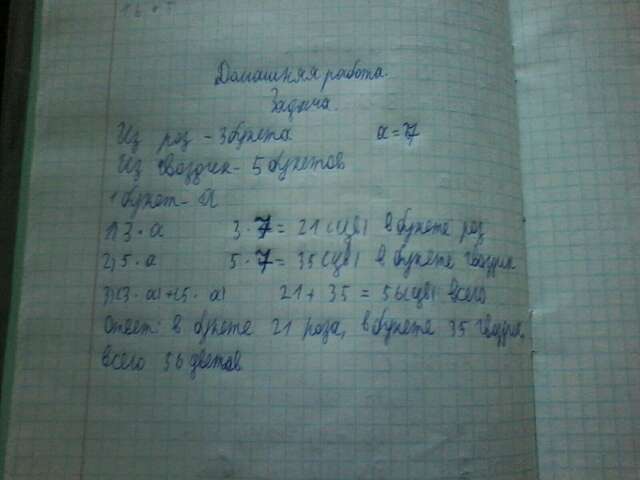 Домашняя работа.
Задача.
Из роз - 3 букета a = 7
Из гвоздик - 5 букетов
1 букет - а
1) 3 · a 3 · 7 = 21 (цв) в букете роз
2) 5 · a 5 · 7 = 35 (цв) в букете гвоздик
3) (3 · a) + (5 · a) 21 + 35 = 56 (цв) всего
Ответ: в букете 21 роза, в букете 35 гвоздик,
всего 56 цветов